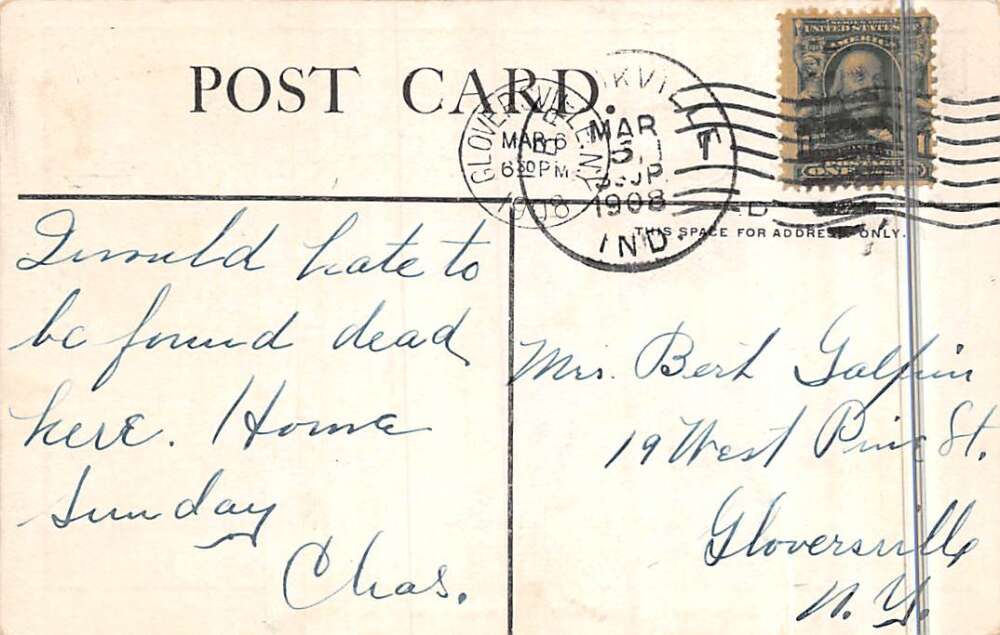 POST CARD.
GLOVERSVILLE, N.Y.
MAR 6
630 PM
1908
MAR
5
1908
IND.
SERIES 1902
UNITED STATES
AMERICA
THIS SPACE FOR ADDRESS ONLY.
I would hate to
be found dead
here. Home
Sunday
Chas.
Mrs. Bert Galpin
19 West Pine St.
Gloversville
N. Y.